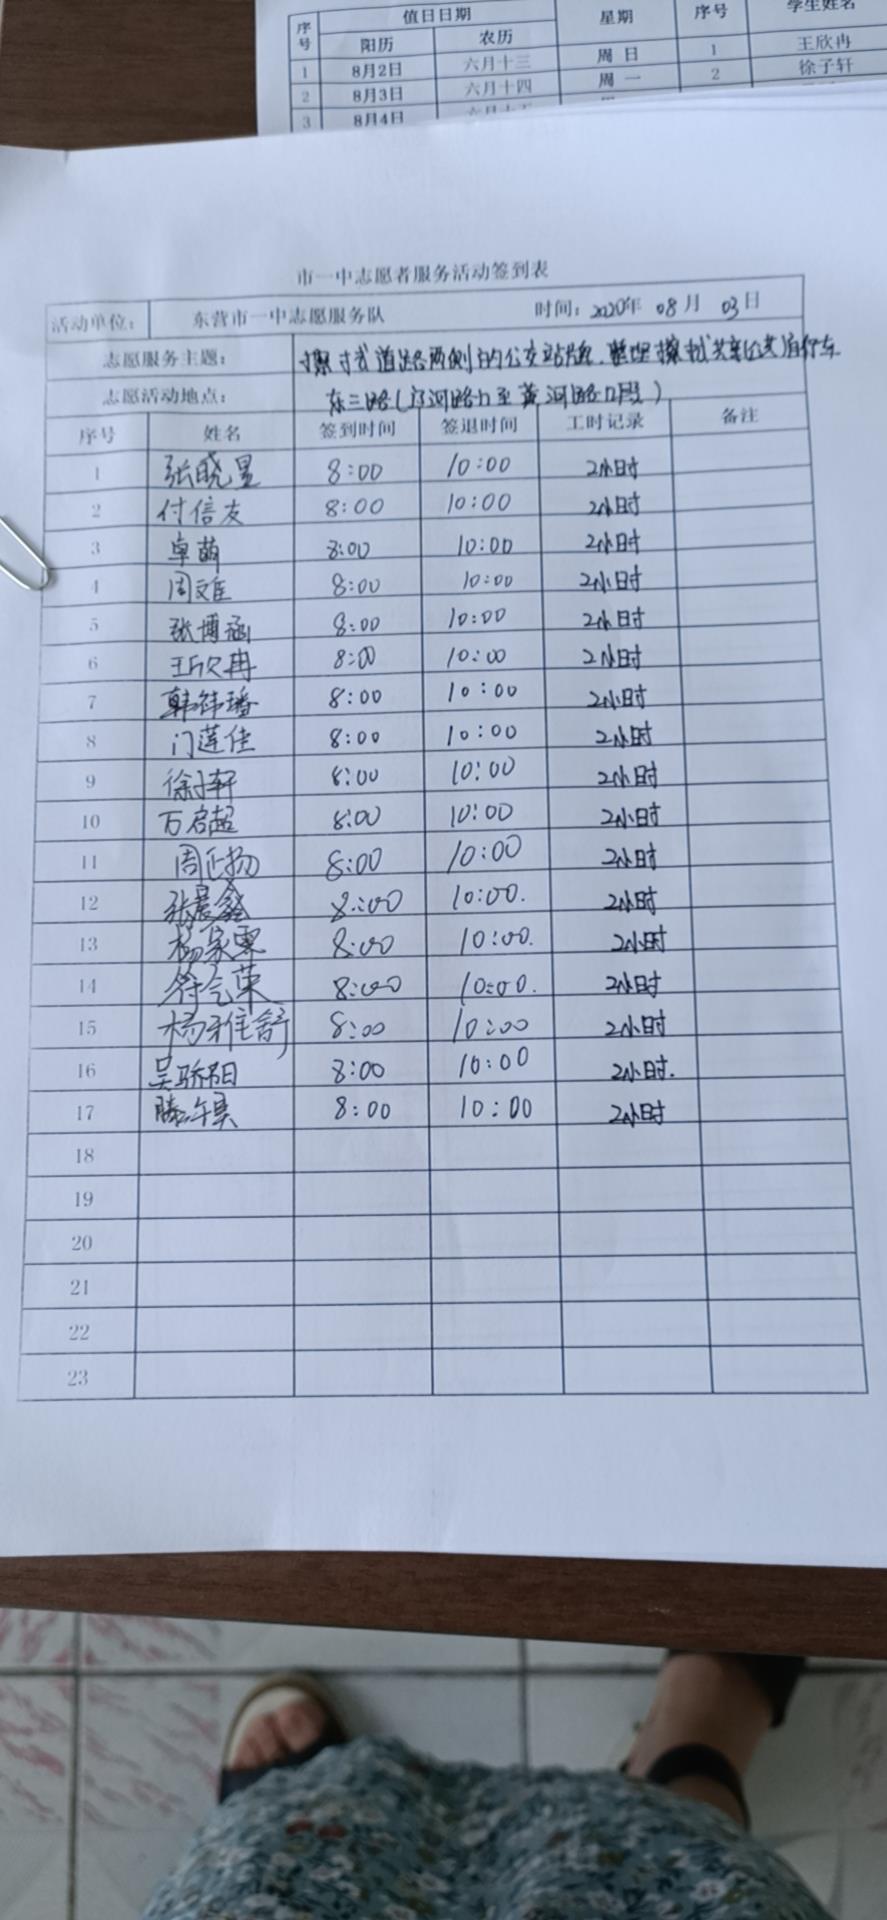 序号 值日日期 星期 序号 学生姓名
阳历 农历
1 8月2日 六月十三 周日 1 王欣冉
2 8月3日 六月十四 周一 2 徐子轩
3 8月4日
市一中志愿者服务活动签到表
活动单位: 东营市一中志愿服务队 时间: 2020年 08月 03日
志愿服务主题: 擦拭道路两侧的公交站牌、整理擦拭共享公共自行车
志愿活动地点: 东三路(府河路口至黄河路口段)
序号 姓名 签到时间 签退时间 工时记录 备注
1 张晓昱 8:00 10:00 2小时
2 付信友 8:00 10:00 2小时
3 卓萌 8:00 10:00 2小时
4 8:00 10:00 2小时
5 张博涵 8:00 10:00 2小时
6 王欣冉 8:00 10:00 2小时
7 韩祎璠 8:00 10:00 2小时
8 门莲佳 8:00 10:00 2小时
9 徐子轩 8:00 10:00 2小时
10 万启超 8:00 10:00 2小时
11 周正扬 8:00 10:00 2小时
12 张晨鑫 8:00 10:00. 2小时
13 8:00 10:00. 2小时
14 8:00 10:00. 2小时
15 杨雅舒 8:00 10:00 2小时
16 吴骄阳 8:00 10:00 2小时.
17 8:00 10:00 2小时
18
19
20
21
22
23